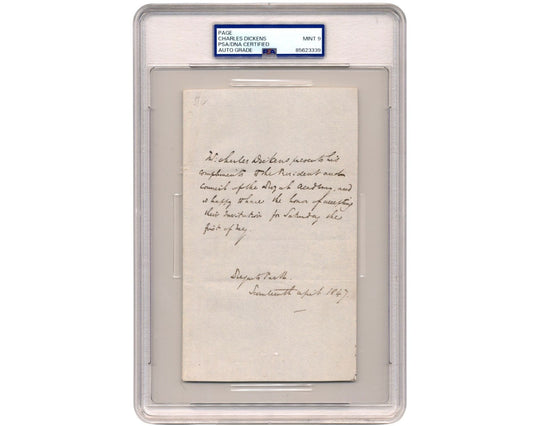 PAGE
CHARLES DICKENS
PSA/DNA CERTIFIED
AUTO GRADE
MINT 9
85623339
Mr. Charles Dickens presents his
compliments to the President and
Council of the Royal Academy, and
is happy to have the honor of accepting
their Invitation for Saturday the
first of May.
Regents Park.
April 1847.